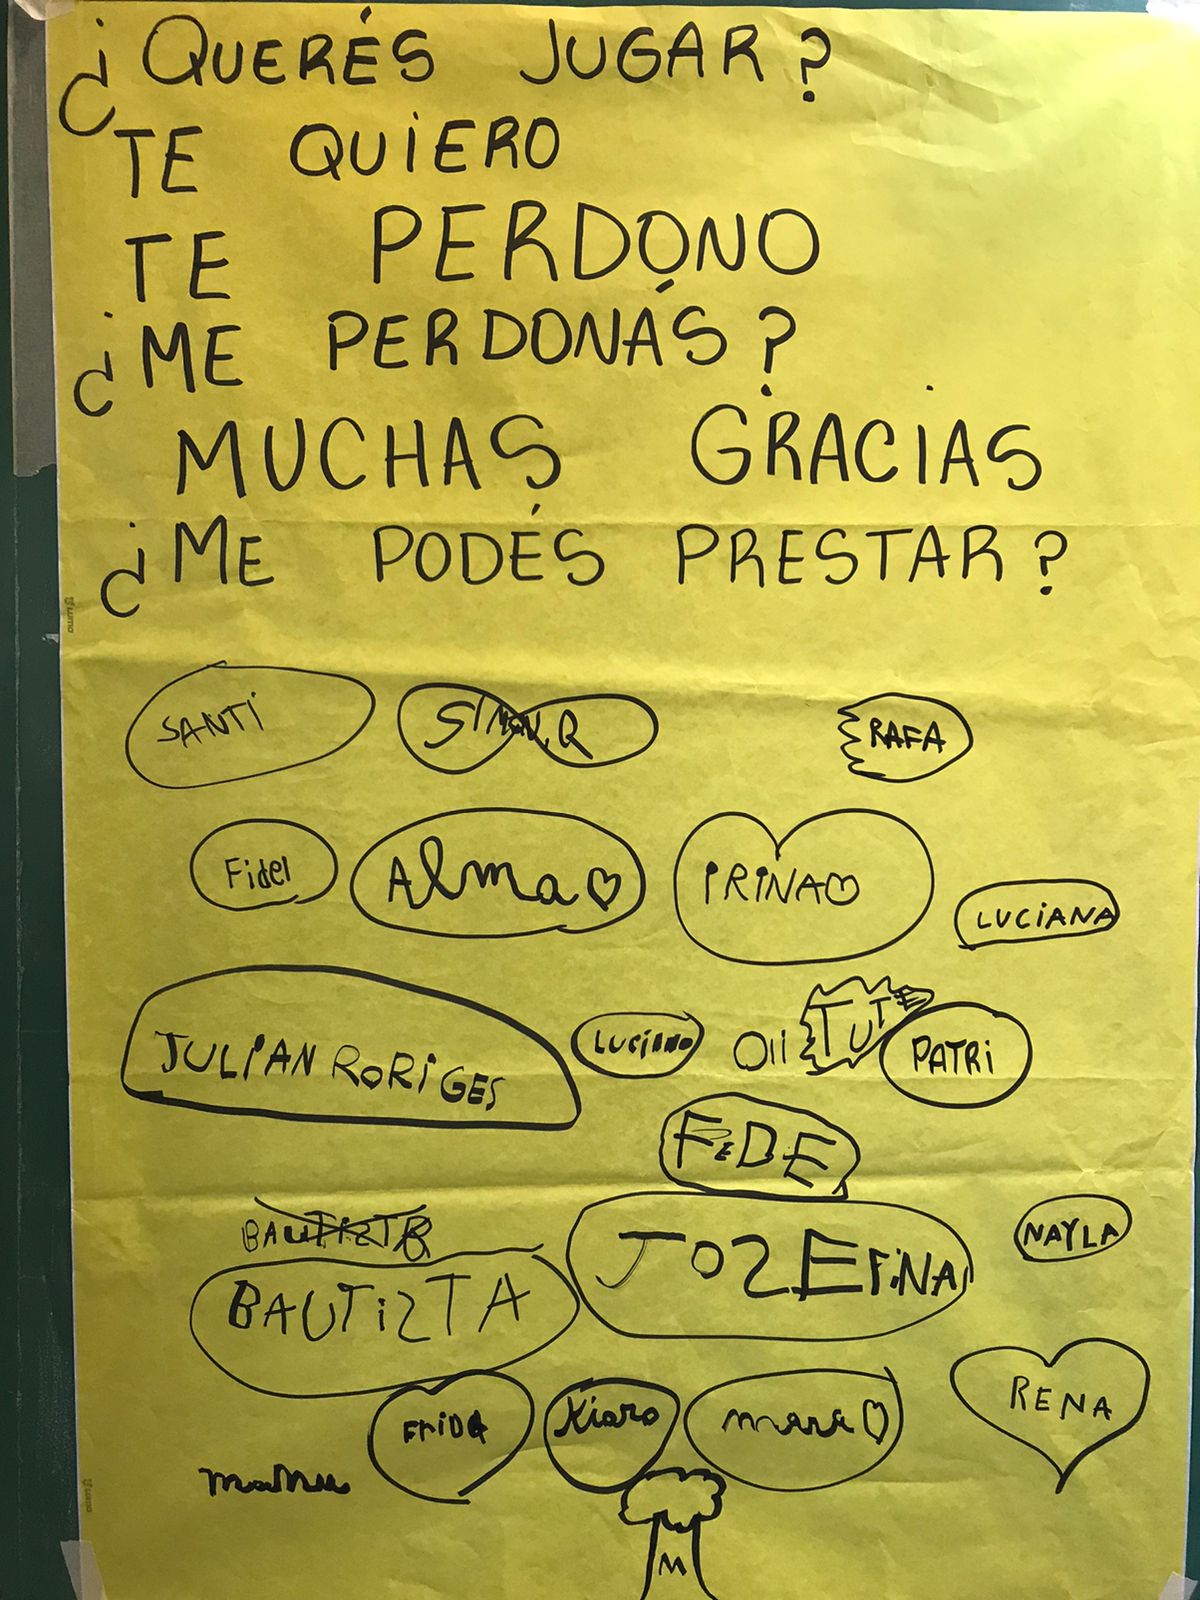 ¿QUERÉS JUGAR?
TE QUIERO
TE PERDONO
¿ME PERDONÁS?
MUCHAS GRACIAS
¿ME PODÉS PRESTAR?
SANTI SIMON.Q RAFA
Fidel Alma IRINA LUCIANA
JULIAN RORIGES LUCIANO Oli TUTE PATRI
FEDE
BAUTIZTA
BAUTIZTA JOZEFINA NAYLA
FRIDA Kiara mara RENA
manu
M